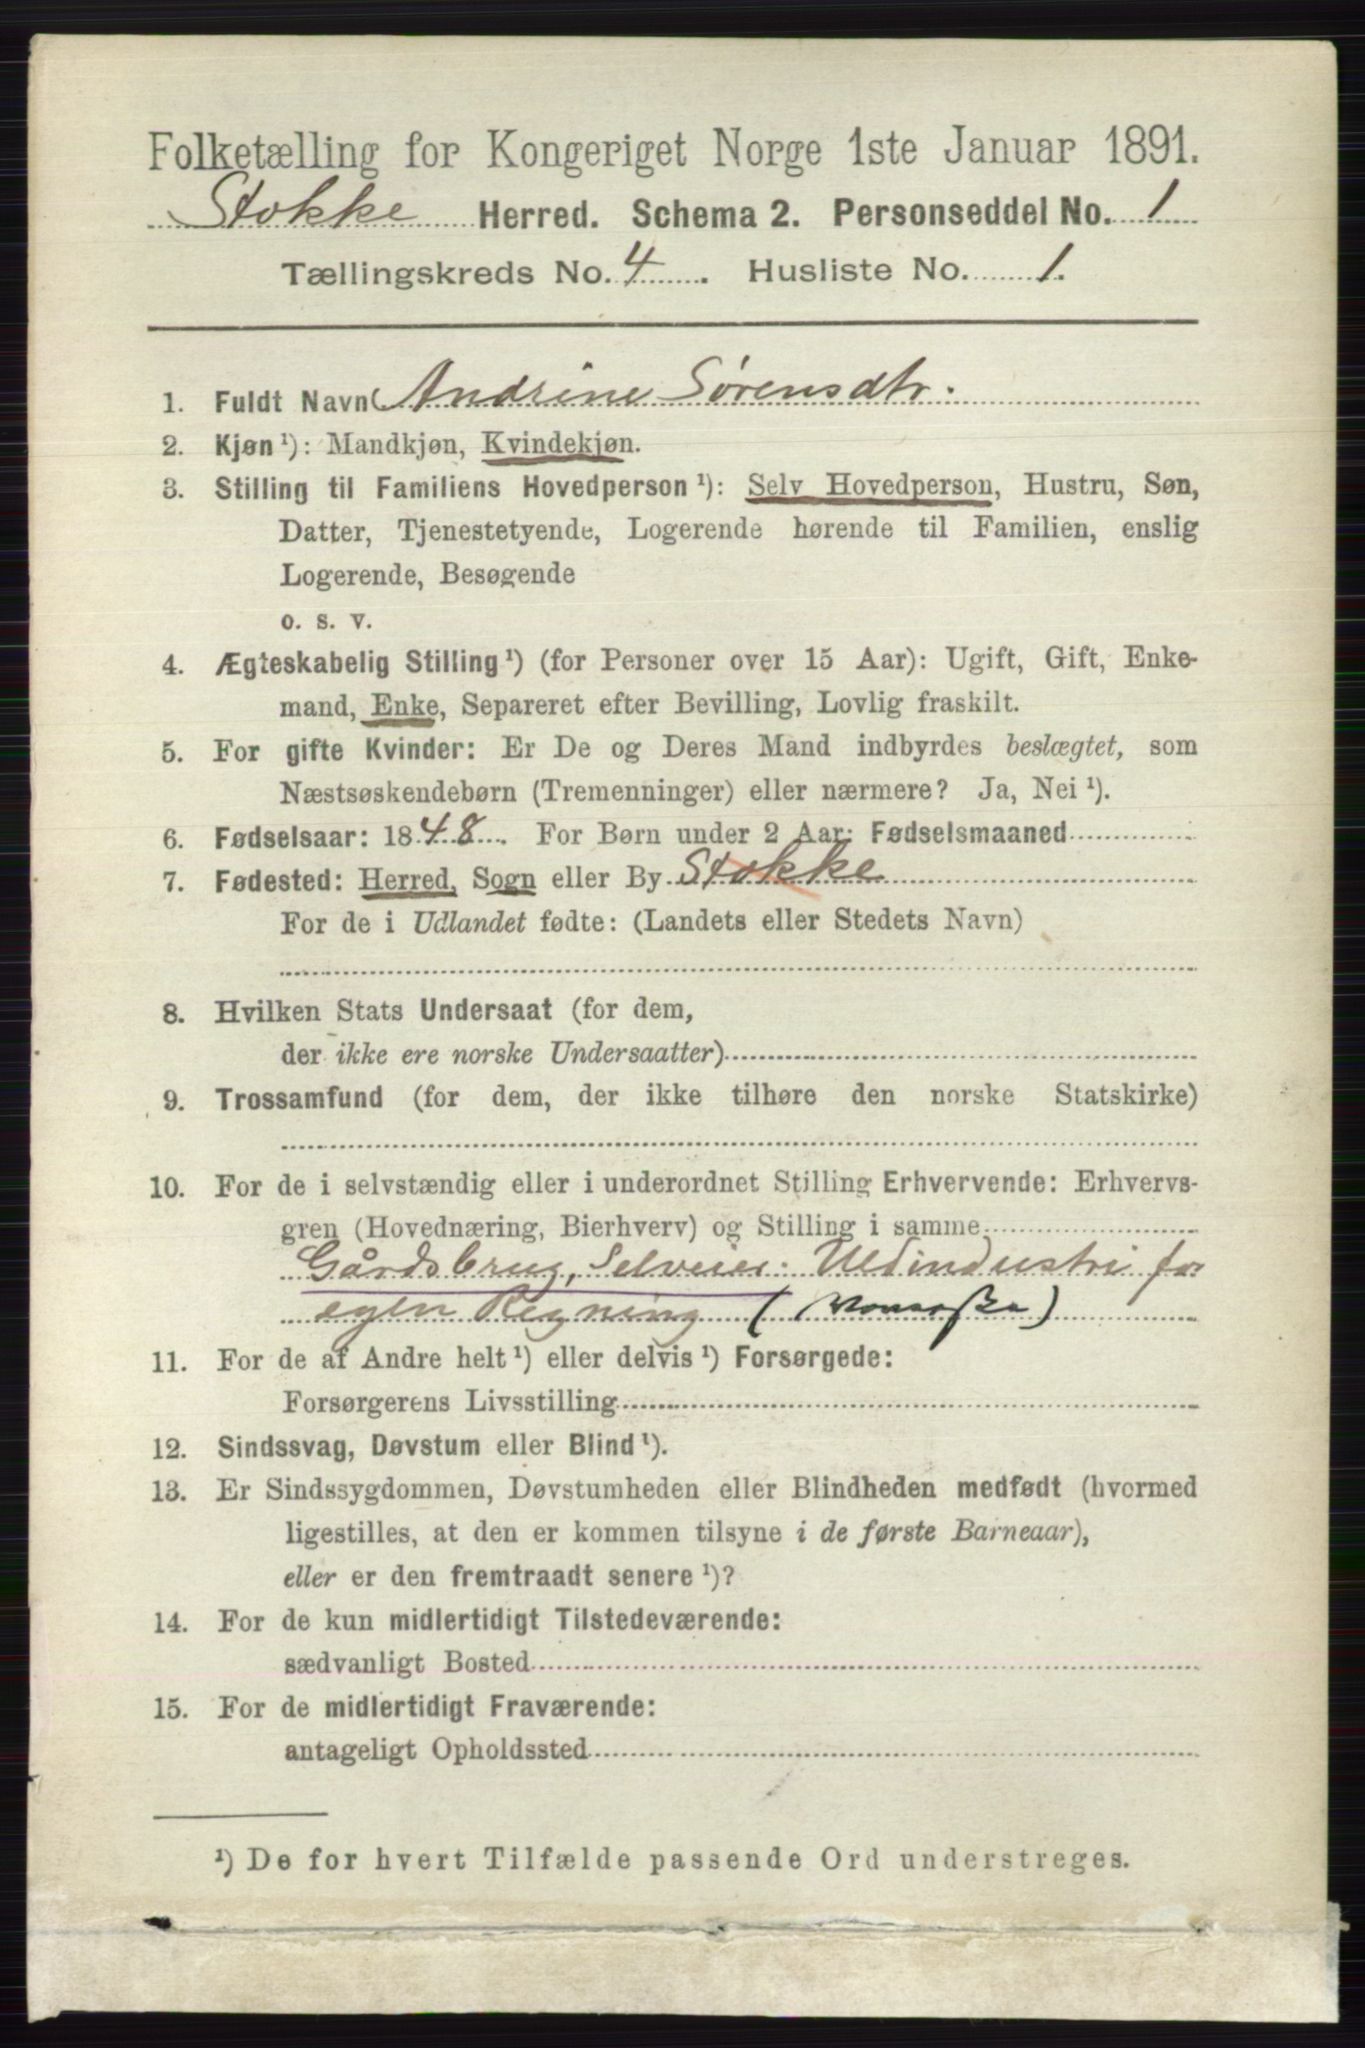 Folketælling for Kongeriget Norge 1ste Januar 1891.
Stokke Herred. Schema 2. Personseddel No. 1
Tællingskreds No. 4. Husliste No. 1.
1. Fuldt Navn Andrine Sørensdtr.
2. Kjøn¹): Mandkjøn, Kvindekjøn.
3. Stilling til Familiens Hovedperson¹): Selv Hovedperson, Hustru, Søn,
Datter, Tjenestetyende, Logerende hørende til Familien, enslig
Logerende, Besøgende
o. s. v.
4. Ægteskabelig Stilling¹) (for Personer over 15 Aar): Ugift, Gift, Enke-
mand, Enke, Separeret efter Bevilling, Lovlig fraskilt.
5. For gifte Kvinder: Er De og Deres Mand indbyrdes beslægtet, som
Næstsøskendebørn (Tremenninger) eller nærmere? Ja, Nei¹).
6. Fødselsaar: 1848. For Børn under 2 Aar: Fødselsmaaned
7. Fødested: Herred, Sogn eller By Stokke
For de i Udlandet fødte: (Landets eller Stedets Navn)
8. Hvilken Stats Undersaat (for dem,
der ikke ere norske Undersaatter)
9. Trossamfund (for dem, der ikke tilhøre den norske Statskirke)
10. For de i selvstændig eller i underordnet Stilling Erhvervende: Erhvervs-
gren (Hovednæring, Bierhverv) og Stilling i samme
Gårdsbrug, Selveier. Uldindustri for
egen Regning
11. For de af Andre helt¹) eller delvis¹) Forsørgede:
Forsørgerens Livsstilling
12. Sindssvag, Døvstum eller Blind¹).
13. Er Sindssygdommen, Døvstumheden eller Blindheden medfødt (hvormed
ligestilles, at den er kommen tilsyne i de første Barneaar),
eller er den fremtraadt senere¹)?
14. For de kun midlertidigt Tilstedeværende:
sædvanligt Bosted
15. For de midlertidigt Fraværende:
antageligt Opholdssted
¹) De for hvert Tilfælde passende Ord understreges.